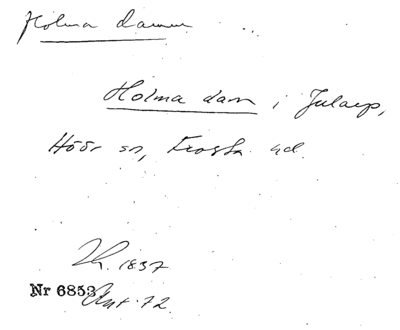 Holma damm
Holma dam i Julaep,
Höör sn, Frosta hd.
Th. 1837
Nr 6853 Ant. 72.